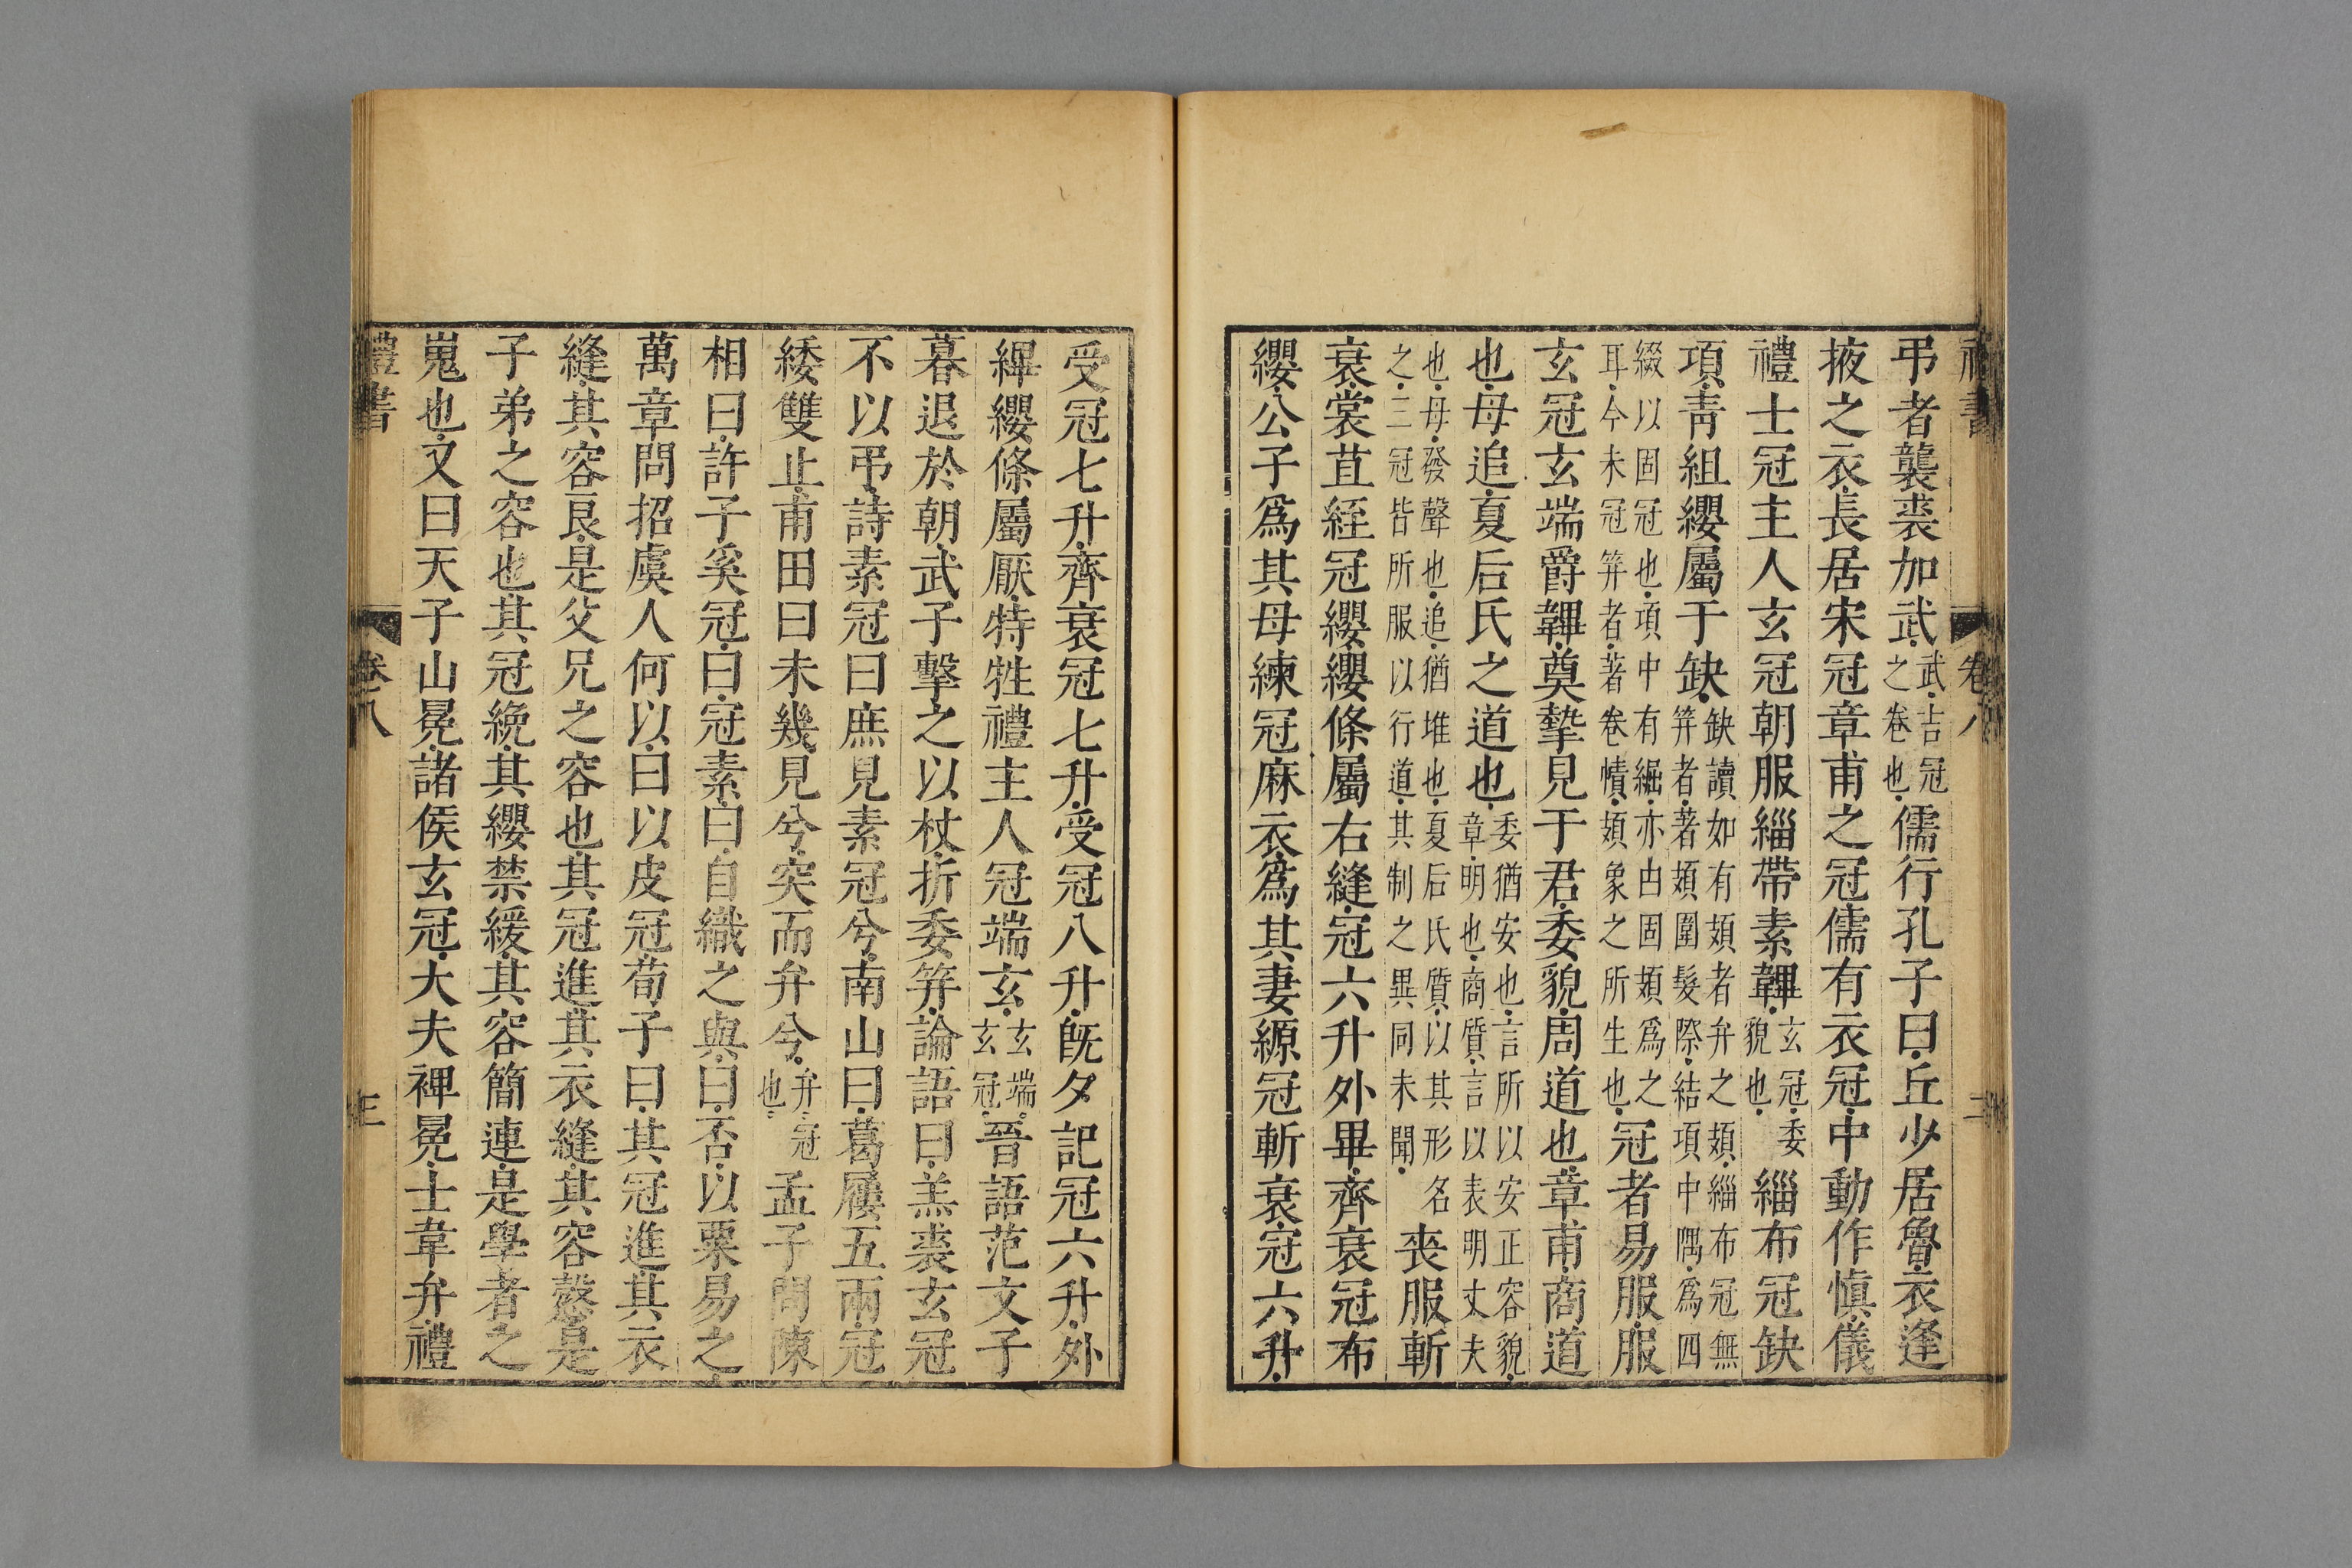 禮書 卷八 二
弔者襲裘加武武吉冠之卷也儒行孔子曰丘少居魯衣逢
掖之衣長居宋冠章甫之冠儒有衣冠中動作慎儀
禮士冠主人玄冠朝服緇帶素韠玄冠委貌也緇布冠缺
項青組纓屬于缺缺讀如有頍者弁之頍緇布冠無笄者著頍圍髮際結項中隅爲四
綴以固冠也項中有𦁐亦由固頍爲之耳今未冠笄者著卷幘頍象之所生也冠者易服服
玄冠玄端爵韠奠摯見于君委貌周道也章甫商道
也毋追夏后氏之道也委猶安也言所以安正容貌章明也商質言以表明丈夫
也毋發聲也追猶堆也夏后氏質以其形名之三冠皆所服以行道其制之異同未聞喪服斬
衰裳苴絰冠纓纓條屬右縫冠六升外畢齊衰冠布
纓公子爲其母練冠麻衣爲其妻縓冠斬衰冠六升
受冠七升齊衰冠七升受冠八升旣夕記冠六升外
縪纓條屬厭特牲禮主人冠端玄玄端玄冠晉語范文子
暮退於朝武子擊之以杖折委笄論語曰羔裘玄冠
不以弔詩素冠曰庶見素冠兮南山曰葛屨五兩冠
緌雙止甫田曰未幾見兮突而弁兮弁冠也孟子問陳
相曰許子奚冠曰冠素曰自織之與曰否以粟易之
萬章問招虞人何以曰以皮冠荀子曰其冠進其衣
縫其容良是父兄之容也其冠進其衣縫其容愨是
子弟之容也其冠絻其纓禁緩其容簡連是學者之
嵬也又曰天子山冕諸侯玄冠大夫裨冕士韋弁禮
禮書 卷八 三